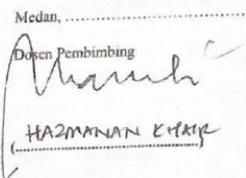 Medan, ..............................
Dosen Pembimbing
HAZMANAN KHAIR
(..............................)